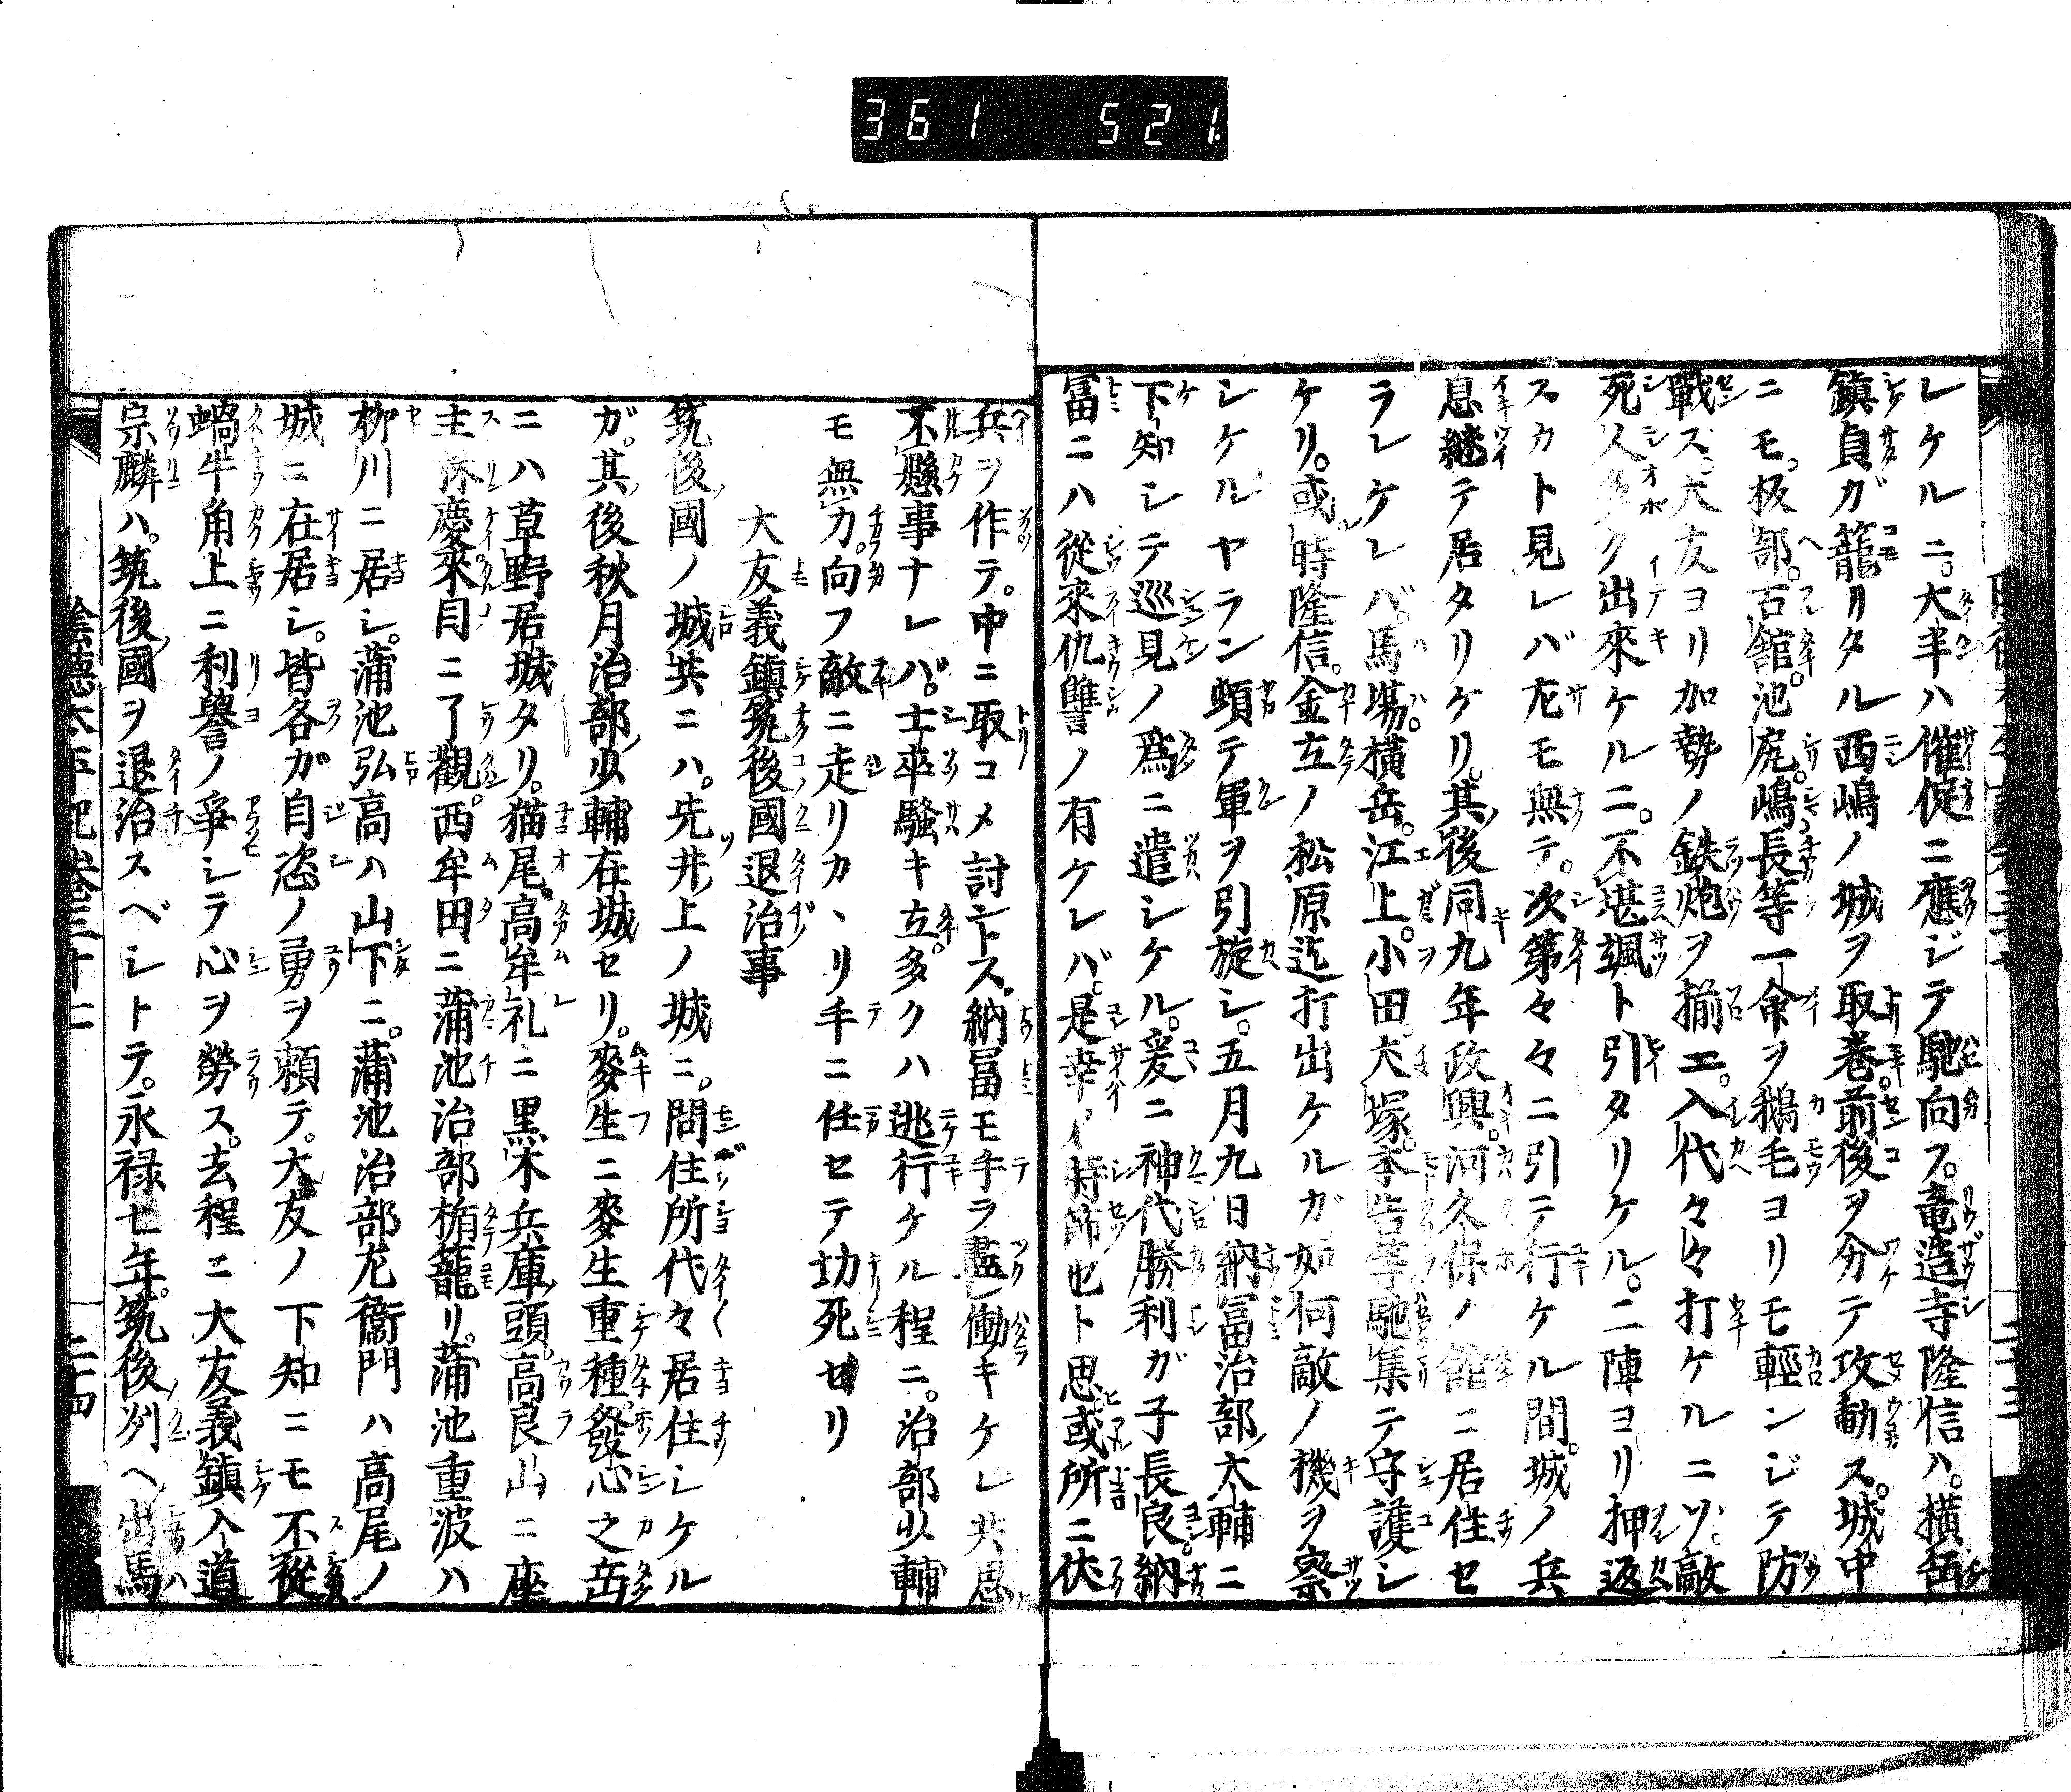 361 521
レケルニ。大半ハ催促ニ應ジテ馳向フ。竜造寺隆信ハ。横岳
鎮貞ガ籠リタル西嶋ノ城ヲ取巻。前後ヲ分テ攻動ス。城中
ニモ。板部。古舘。池尻。嶋長等一命ヲ鵝毛ヨリモ輕ンジテ防
戰ス。大友ヨリ加勢ノ鉄炮ヲ揃エ。入代々々打ケルニソ。敵
死人多ク出來ケルニ。不堪颯ト引タリケル。二陣ヨリ押返
スカト見レバ左モ無テ。次第々々ニ引テ行ケル間。城ノ兵
息継テ居タリケリ。其後同九年政興。河久保ノ館ニ居住セ
ラレケレバ。馬塲。横岳。江上。小田。犬塚。本告等馳集テ守護シ
ケリ。或時隆信。金立ノ松原迄打出ケルガ如何敵ノ機ヲ察
シケルヤラン頓テ軍ヲ引旋シ。五月九日納冨治部太輔ニ
下知シテ巡見ノ爲ニ遣シケル。爰ニ神代勝利ガ子長良。納
冨ニハ從來仇讐ノ有ケレバ。是幸イ時節也ト思。或所ニ伏
兵ヲ作テ。中ニ取コメ討トス。納冨モ手ヲ盡働キケレ共思
不懸事ナレバ。士卒騒キ立。多クハ逃行ケル程ニ。治部少輔
モ無力。向フ敵ニ走リカヽリ手ニ任セテ切死セリ
大友義鎮筑後國退治事
筑後國ノ城共ニハ。先井上ノ城ニ。問住所代々居住シケル
ガ。其後秋月治部少輔在城セリ。麥生ニ麥生重種。發心之岳
ニハ草野居城タリ。猫尾。高牟礼ニ黒木兵庫頭。高良山ニ座
主麟慶來目ニ了觀。西牟田ニ蒲池治部楯籠リ。蒲池重波ハ
柳川ニ居シ。蒲池弘高ハ山下ニ。蒲池治部左衞門ハ高尾ノ
城ニ在居シ。皆各ガ自恣ノ勇ヲ頼テ。大友ノ下知ニモ不從
蝸牛角上ニ利譽ノ爭シテ心ヲ勞ス。去程ニ大友義鎮入道
宗麟ハ。筑後國ヲ退治スベシトテ。永禄七年。筑後刕ヘ出馬
陰徳太平記卷三十二 二十四